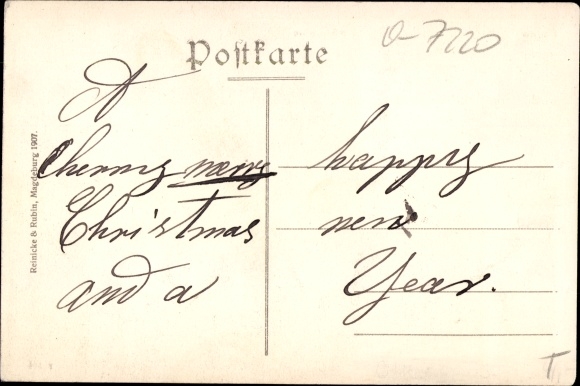 Postkarte
0-7120
A
cherry merry
Christmas
and a
happy
new
Year.
Reinicke & Rubin, Magdeburg 1907.
T